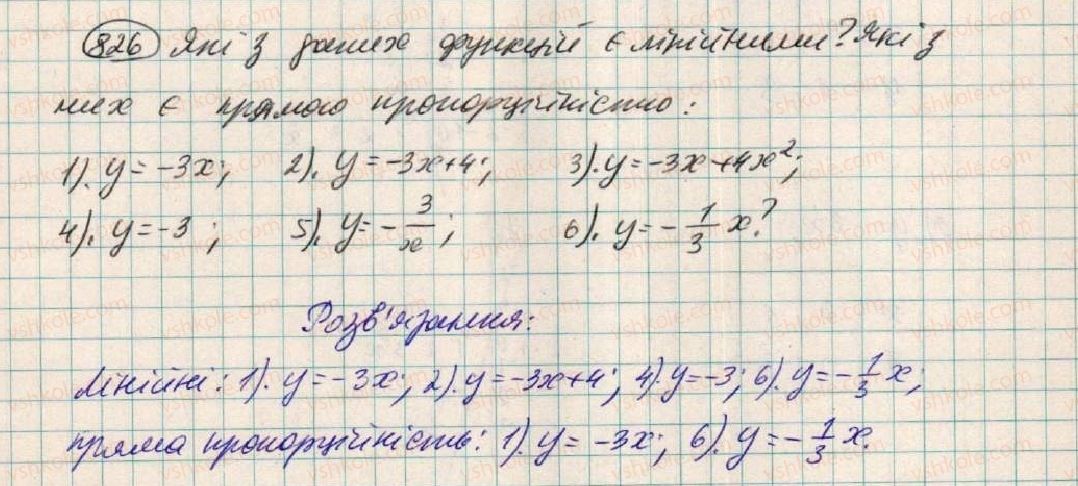 826 Які з даних функцій є лінійними? Які з
них є прямою пропорційністю:
1). y = -3x; 2). y = -3x+4; 3). y = -3x+4x²;
4). y = -3; 5). y = -3/x; 6). y = -1/3 x?
Розв'язання:
Лінійні: 1). y = -3x; 2). y = -3x+4; 4). y = -3; 6). y = -1/3 x;
пряма пропорційність: 1). y = -3x; 6). y = -1/3 x.